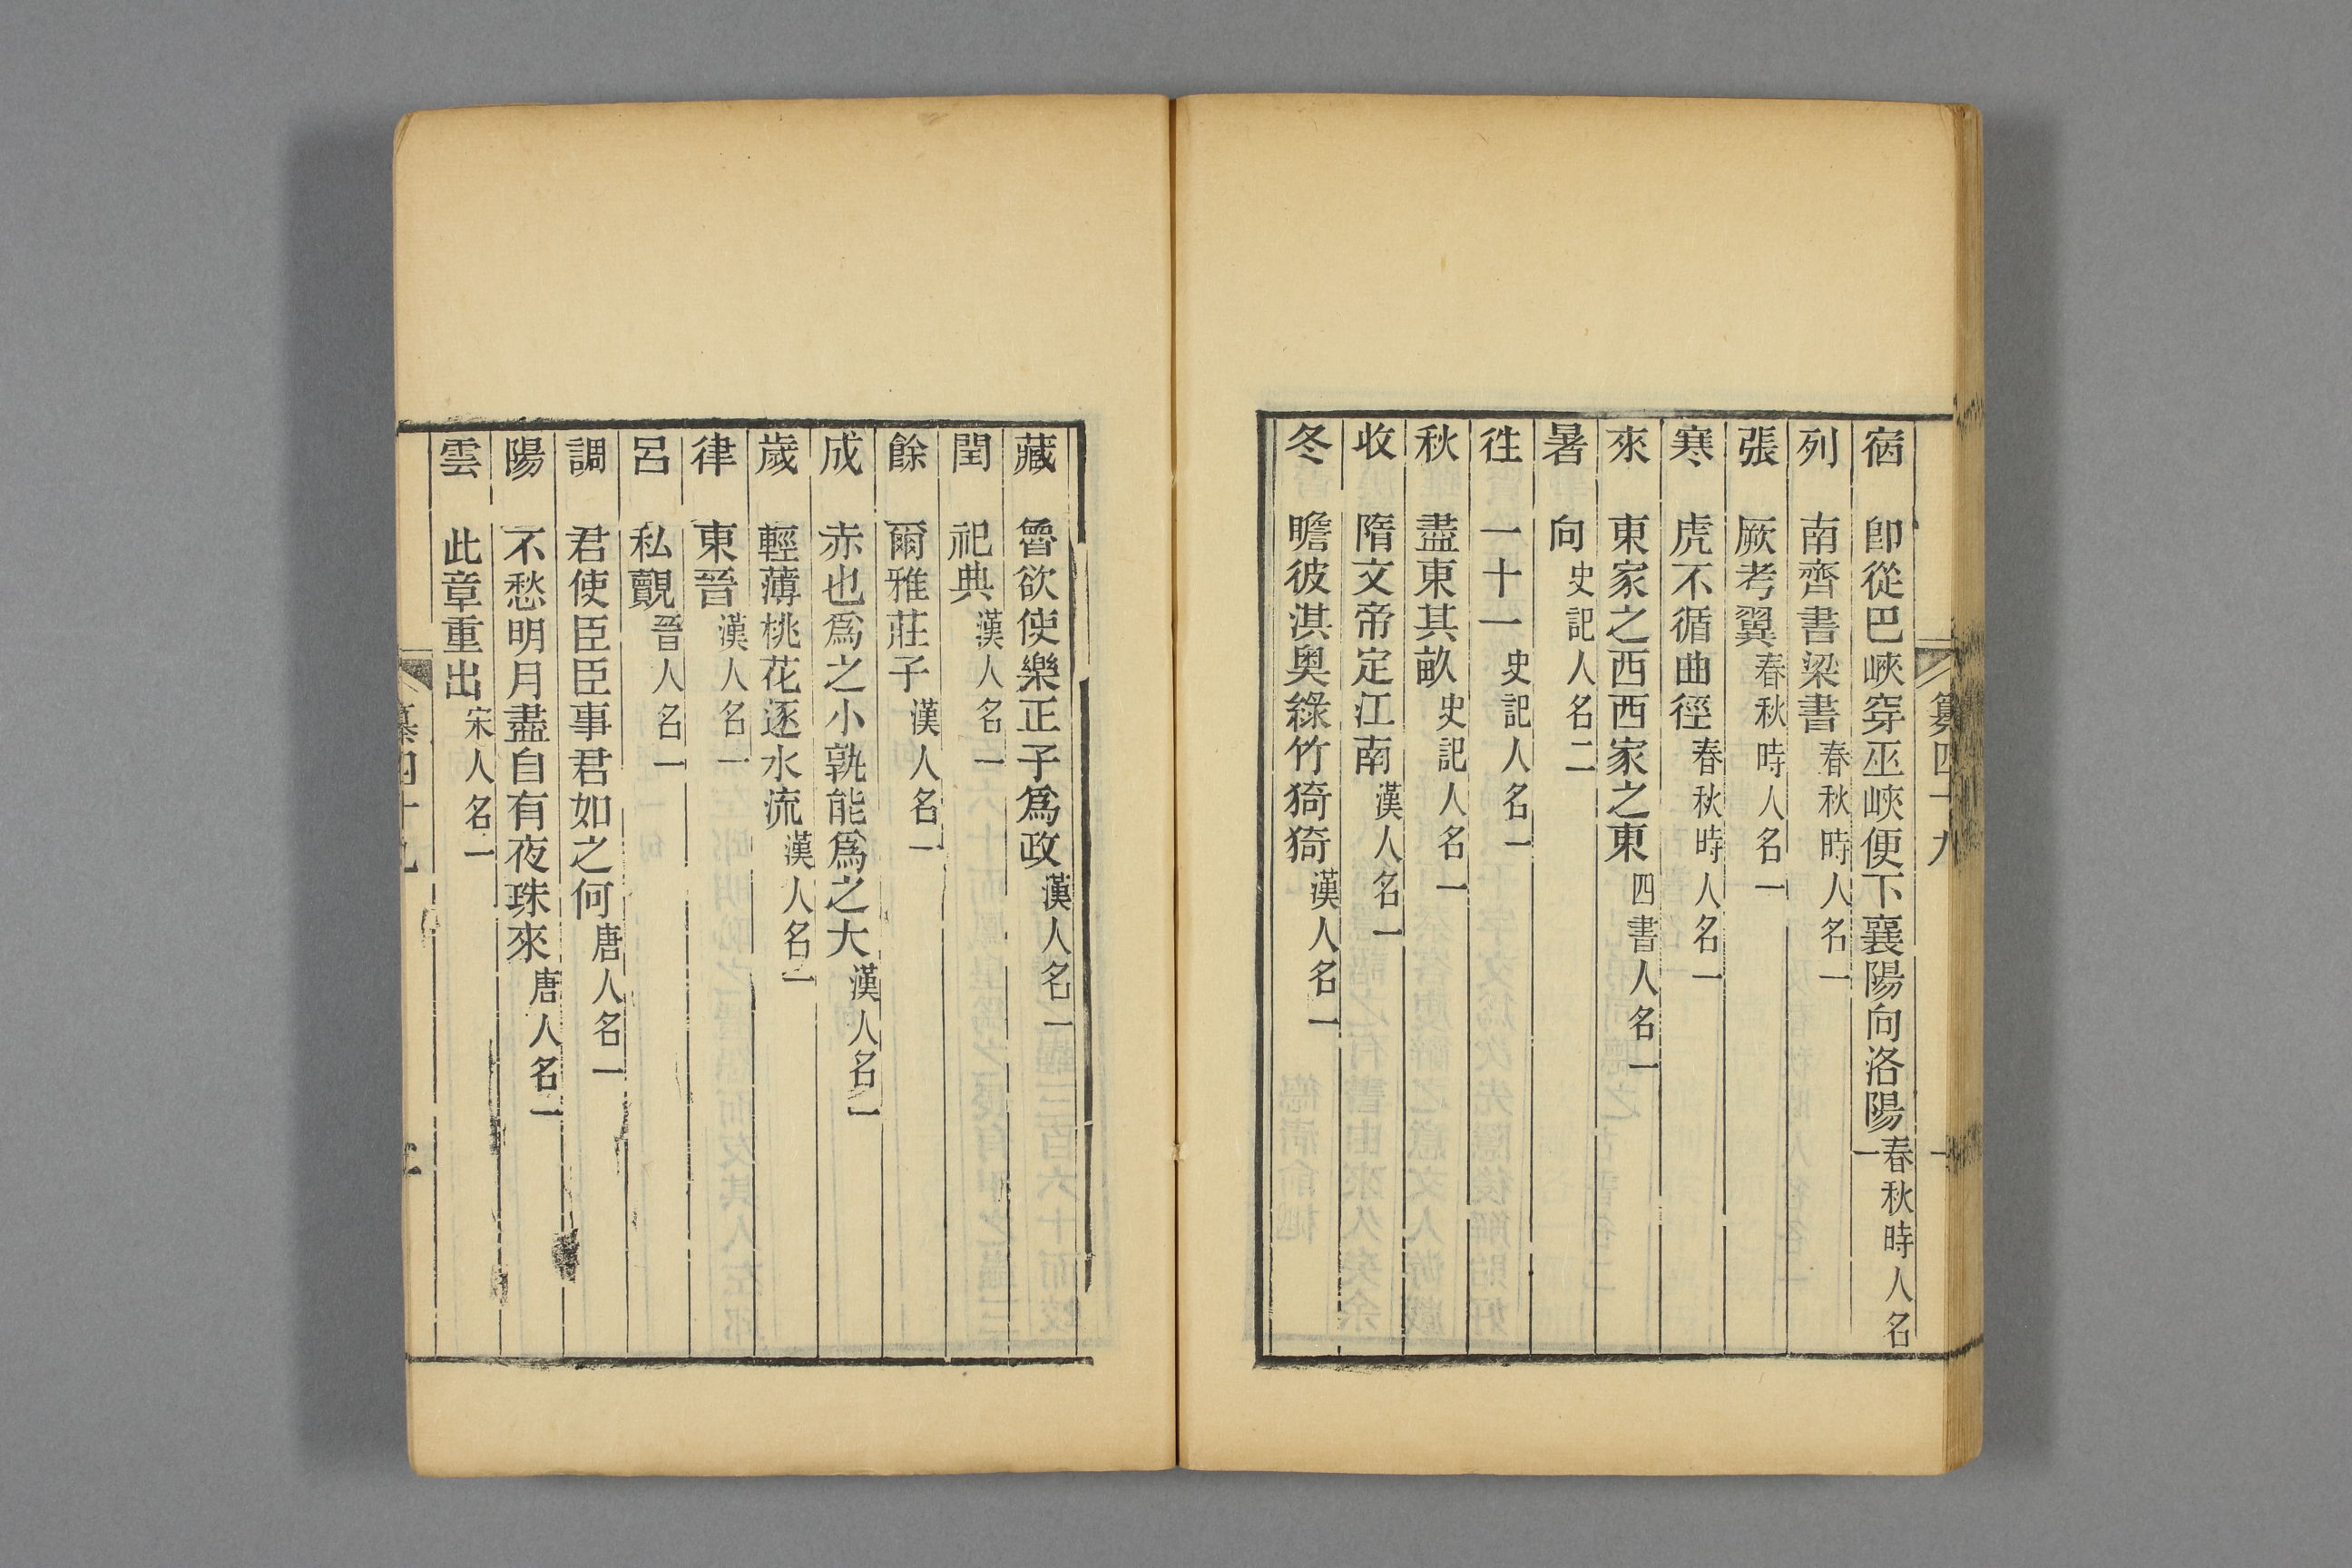 纂四十九
一
宿 卽從巴峽穿巫峽便下襄陽向洛陽春秋時人名一
列 南齊書梁書春秋時人名一
張 厥考翼春秋時人名一
寒 虎不循曲徑春秋時人名一
來 東家之西西家之東四書人名一
暑 向史記人名二
徃 一十一史記人名一
秋 盡東其畝史記人名一
收 隋文帝定江南漢人名一
冬 瞻彼淇奧綠竹猗猗漢人名一
藏 魯欲使樂正子爲政漢人名一
閏 祀典漢人名一
餘 爾雅莊子漢人名一
成 赤也爲之小孰能爲之大漢人名一
歲 輕薄桃花逐水流漢人名一
律 東晉漢人名一
呂 私覿晉人名一
調 君使臣臣事君如之何唐人名一
陽 不愁明月盡自有夜珠來唐人名一
雲 此章重出宋人名一
纂四十九